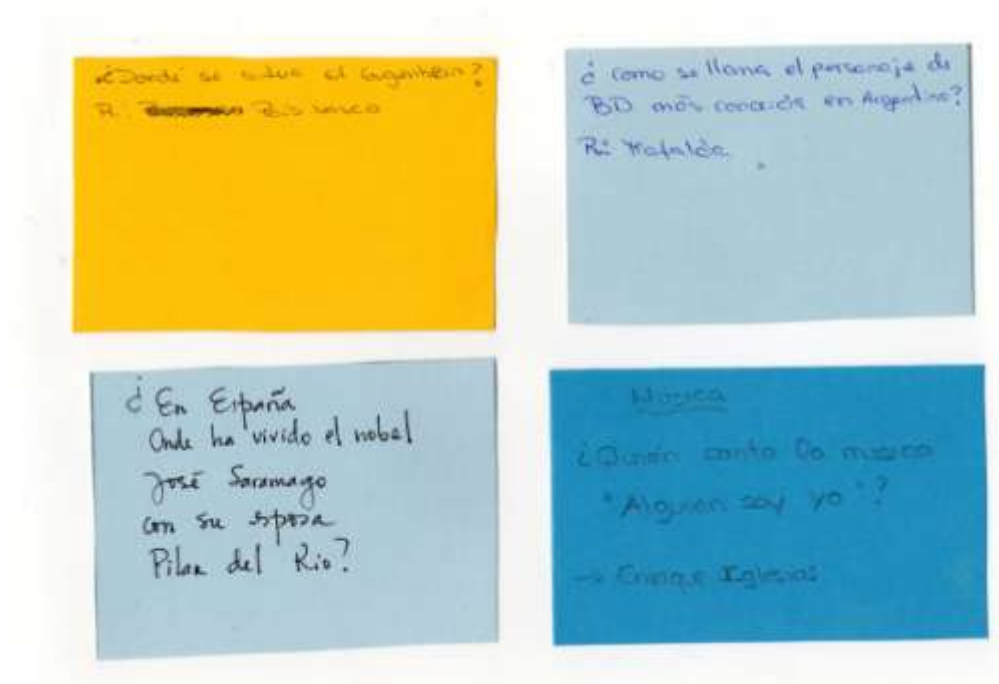 ¿Donde se situa el Gugenhein?
R: País vasco
¿ como se llama el personaje de
BD más conocido en Argentina?
R: Mafalda.
¿ En España
Onde ha vivido el nobel
José Saramago
con su sposa
Pilar del Rio?
Musica
¿Quién canta la musica
"Alguien soy yo"?
→ Enrique Iglesias